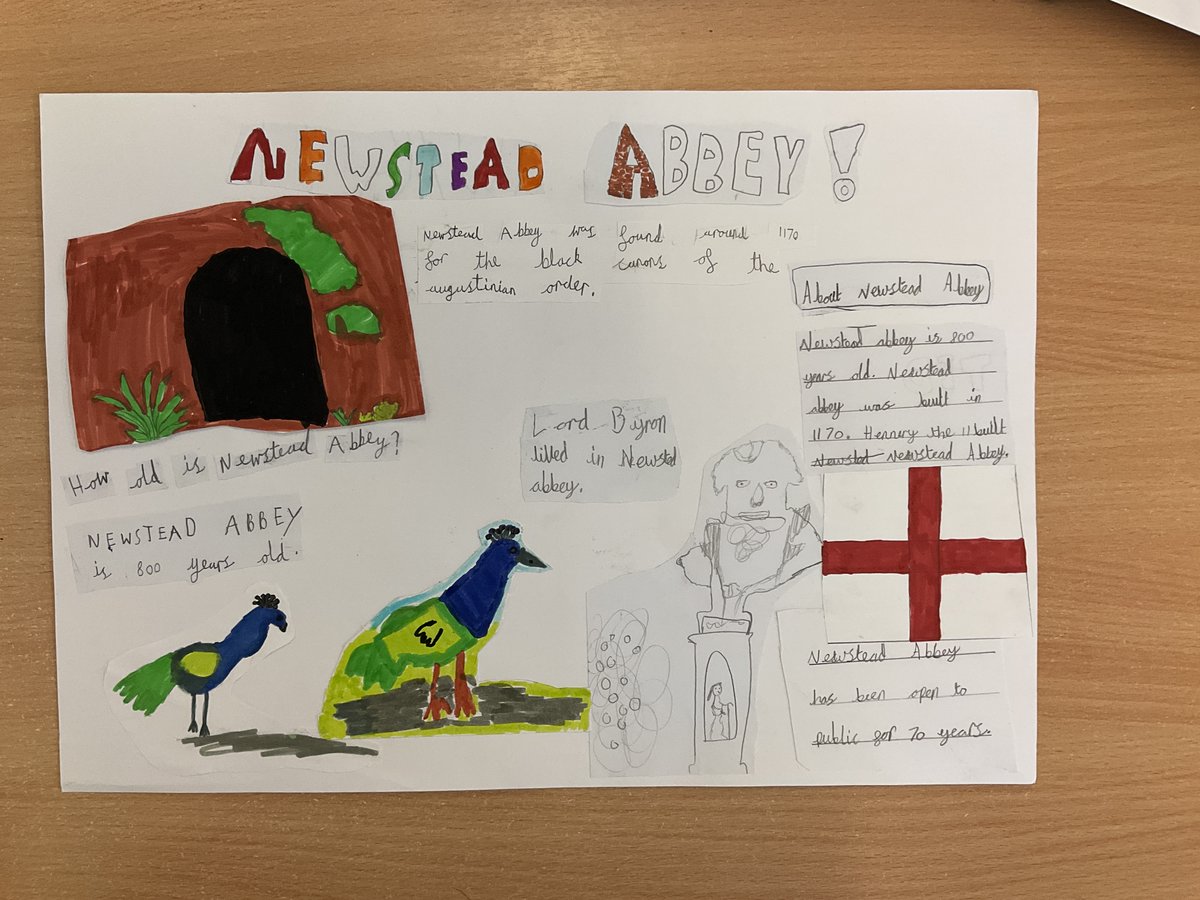 NEWSTEAD ABBEY!
Newstead Abbey was found around 1170
for the black canons of the
augustinian order.
About Newstead Abbey
Newstead abbey is 800
years old. Newstead
abbey was built in
1170. Hennery the 11 built
Newstead Abbey.
Lord Byron
lilled in Newsted
abbey.
How old is Newstead Abbey?
NEWSTEAD ABBEY
is 800 years old.
Newstead Abbey
has been open to
public for 70 years.